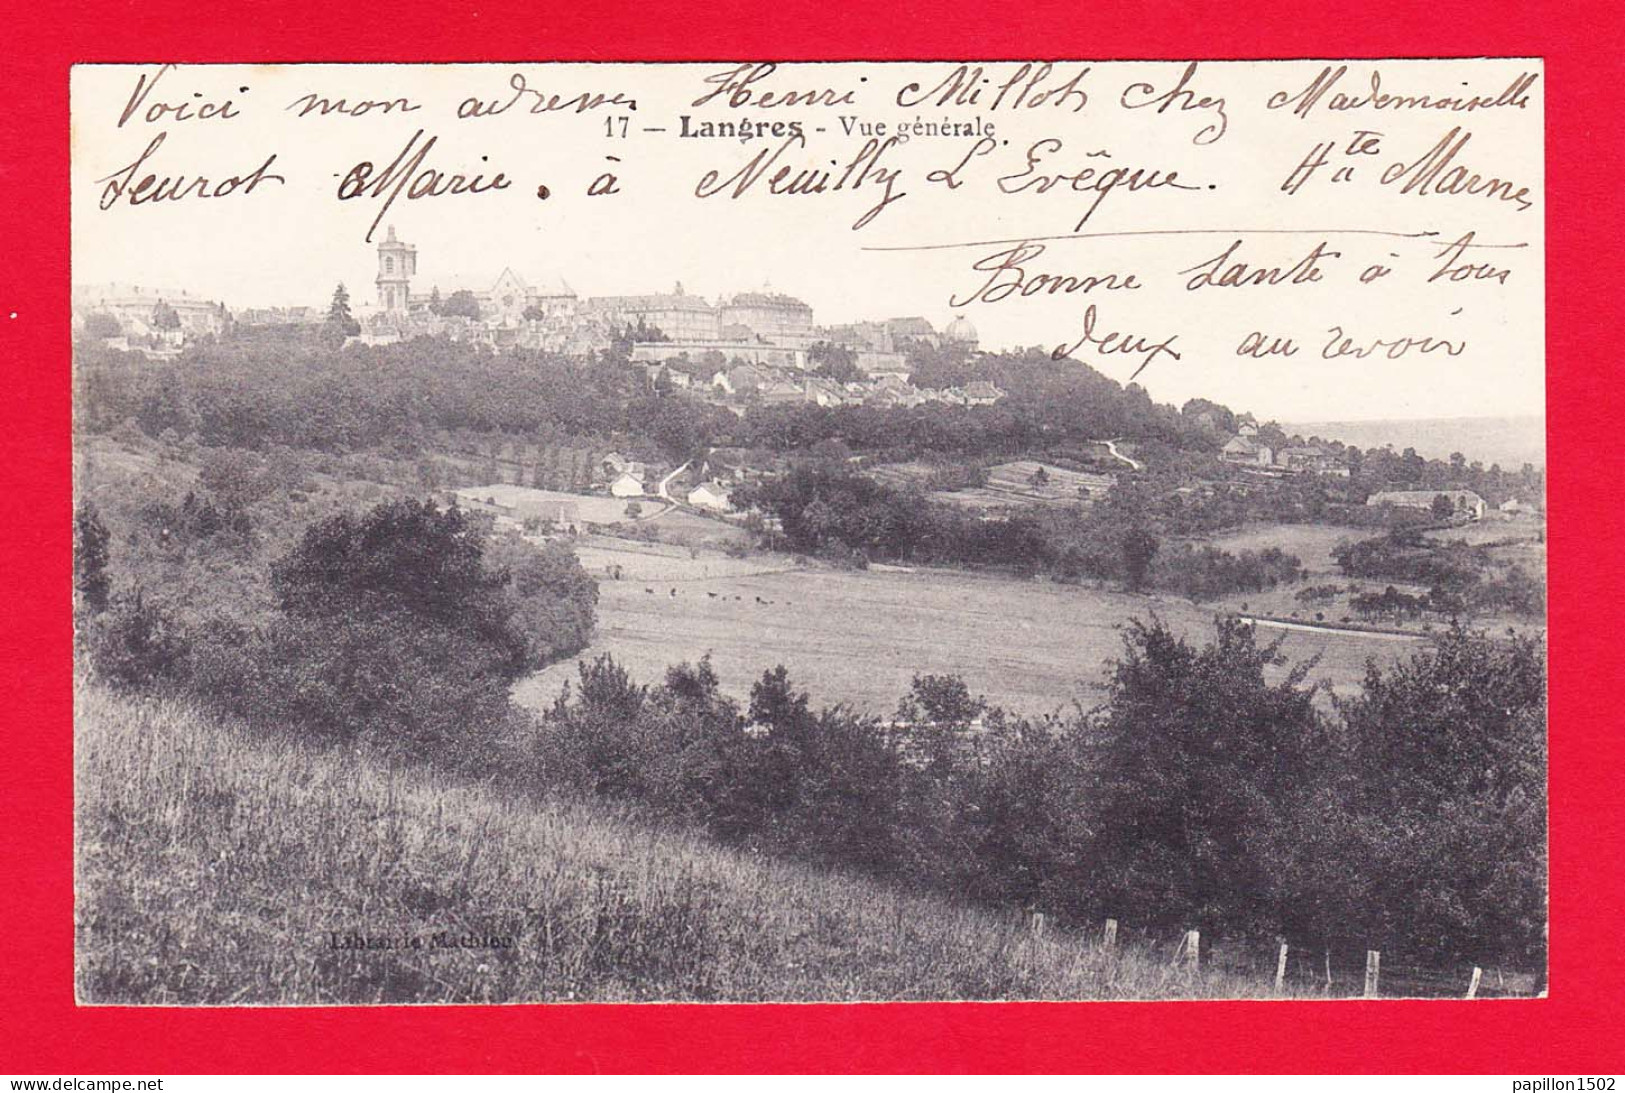 Voici mon adresse, Henri Millot chez Mademoiselle
17 — Langres - Vue générale
Seurot Marie. à Neuilly L'Evêque. Hte Marne,
Bonne Santé à tous
deux au revoir
Librairie Mathieu
Delcampe.net
papillon1502